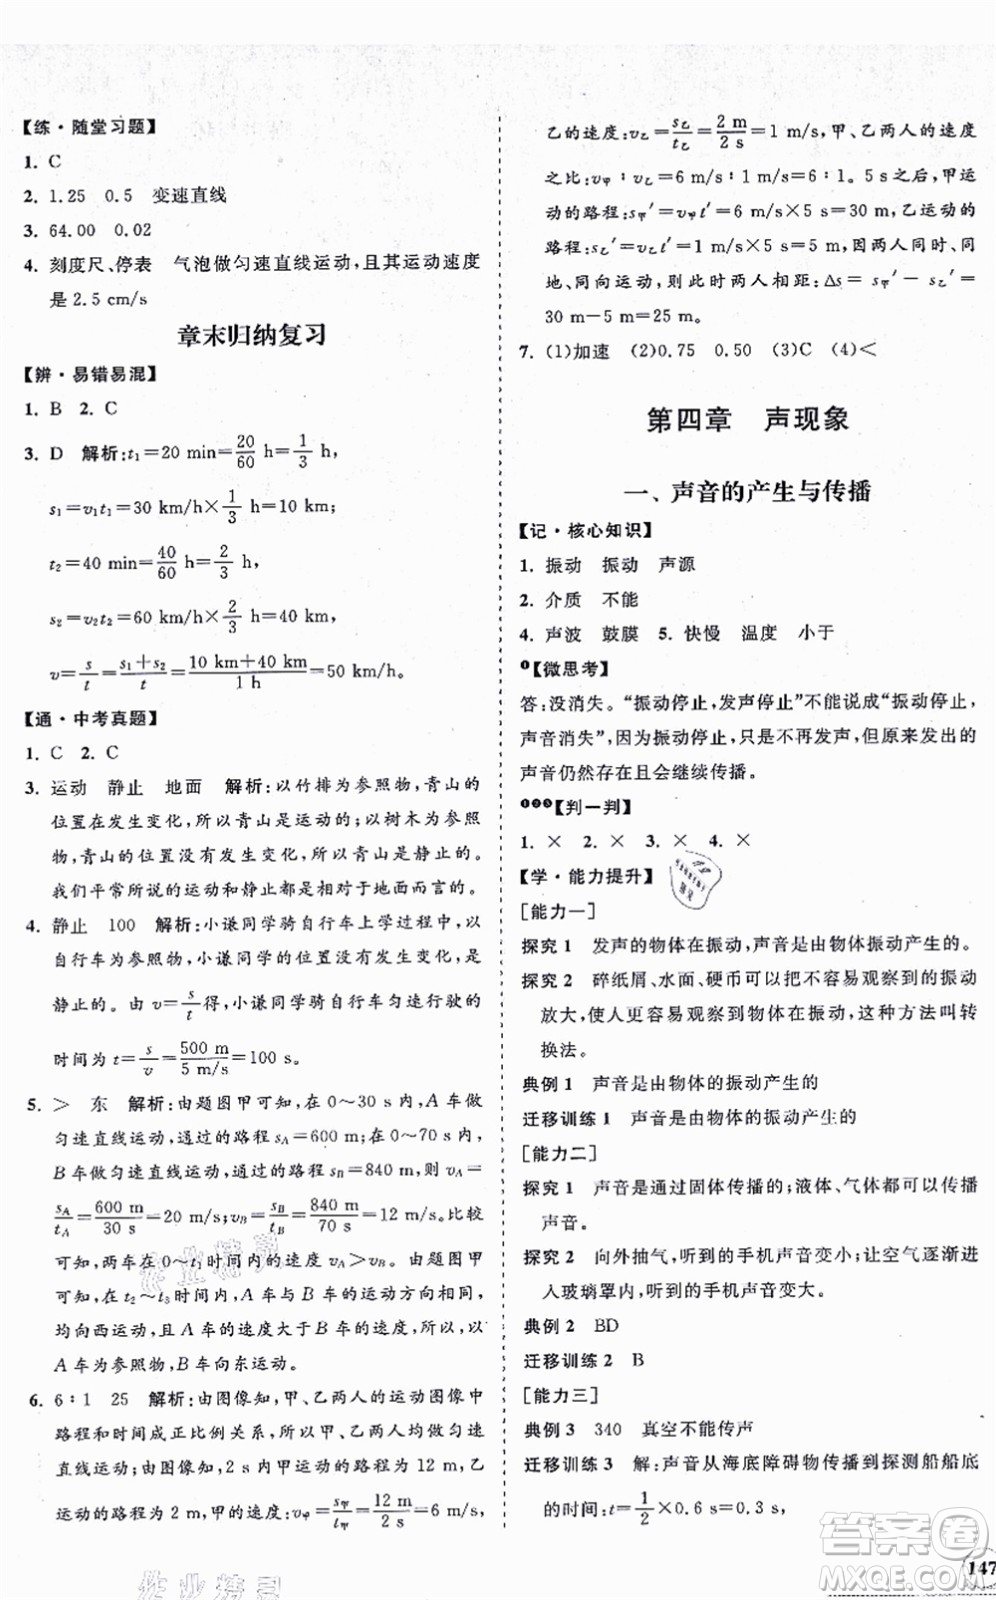 【练·随堂习题】
1. C
2. 1.25　0.5　变速直线
3. 64.00　0.02
4. 刻度尺、停表　气泡做匀速直线运动,且其运动速度
是 2.5 cm/s
章末归纳复习
【辨·易错易混】
1. B　2. C
3. D　解析:t₁=20 min=20/60 h=1/3 h,
s₁=v₁t₁=30 km/h×1/3 h=10 km,
t₂=40 min=40/60 h=2/3 h,
s₂=v₂t₂=60 km/h×2/3 h=40 km,
v=s/t=(s₁+s₂)/t=(10 km+40 km)/1 h=50 km/h。
【通·中考真题】
1. C　2. C
3. 运动　静止　地面　解析:以竹排为参照物,青山的
位置在发生变化,所以青山是运动的;以树木为参照
物,青山的位置没有发生变化,所以青山是静止的。
我们平常所说的运动和静止都是相对于地面来说的。
4. 静止　100　解析:小谦同学骑自行车上学过程中,以
自行车为参照物,小谦同学的位置没有发生变化,是
静止的。由 v=s/t得,小谦同学骑自行车匀速行驶的
时间为 t=s/v=500 m/5 m/s=100 s。
5. >　东　解析:由题图甲可知,在 0～30 s 内,A 车做
匀速直线运动,通过的路程 sA=600 m;在 0～70 s 内,
B 车做匀速直线运动,通过的路程 sB=840 m,则 vA=
sA/tA=600 m/30 s=20 m/s;vB=sB/tB=840 m/70 s=12 m/s。比较
可知,在 0～t₁ 时间内,vA>vB。由题图甲
可知,在 t₂～t₃ 时间内,A 车与 B 车的运动方向相同,
均向西运动,且 A 车的速度大于 B 车的速度,所以,以
A 车为参照物,B 车向东运动。
6. 6∶1　25　解析:由图像知,甲、乙两人的运动图像中
路程和时间成正比例关系,所以甲、乙两人都做匀速
直线运动,由图像知,2 s 甲运动的路程为 12 m,乙
运动的路程为 2 m,甲的速度:v甲=s甲/t甲=12 m/2 s=6 m/s,
乙的速度:v乙=s乙/t乙=2 m/2 s=1 m/s,甲、乙两人的速度
之比:v甲∶v乙=6 m/s∶1 m/s=6∶1。5 s之后,甲运
动的路程:s甲′=v甲t′=6 m/s×5 s=30 m,乙运动的
路程:s乙′=v乙t′=1 m/s×5 s=5 m,因两人同时、同
地、同方向运动,故两人相距:Δs=s甲′-s乙′=
30 m-5 m=25 m。
7. (1)加速　(2)0.75　0.50　(3)C　(4)<
第四章　声现象
一、声音的产生与传播
【记·核心知识】
1. 振动　振动　声源
2. 介质　不能
4. 声波　鼓膜　5. 快慢　温度　小于
❶【微思考】
答:没消失。“振动停止,发声停止”不能说成“振动停止,
声音消失”,因为振动停止,只是不再发声,但是原来的
声音仍然存在且会继续传播。
❶❷❸【判一判】
1. ×　2. ×　3. ×　4. ×
【学·能力提升】
[能力一]
探究 1　发声的物体在振动,声音是由物体振动产生的。
探究 2　碎纸屑、水面、硬币可以把不容易观察到的振动
放大,使人更容易观察到物体在振动,这种方法叫转
换法。
典例 1　声音是由物体的振动产生的
迁移训练 1　声音是由物体的振动产生的
[能力二]
探究 1　声音是通过固体传播的;液体、气体都可以传播
声音。
探究 2　向外抽气,听到的手机声音变小;让空气逐渐进
入玻璃罩内,听到的手机声音变大。
典例 2　BD
迁移训练 2　B
[能力三]
典例 3　340　真空不能传声
迁移训练 3　解:声音从海底障碍物传播到探测船船底
的时间:t=1/2×0.6 s=0.3 s,
作业精灵
作业精灵
答案圈
MXQE.COM
147